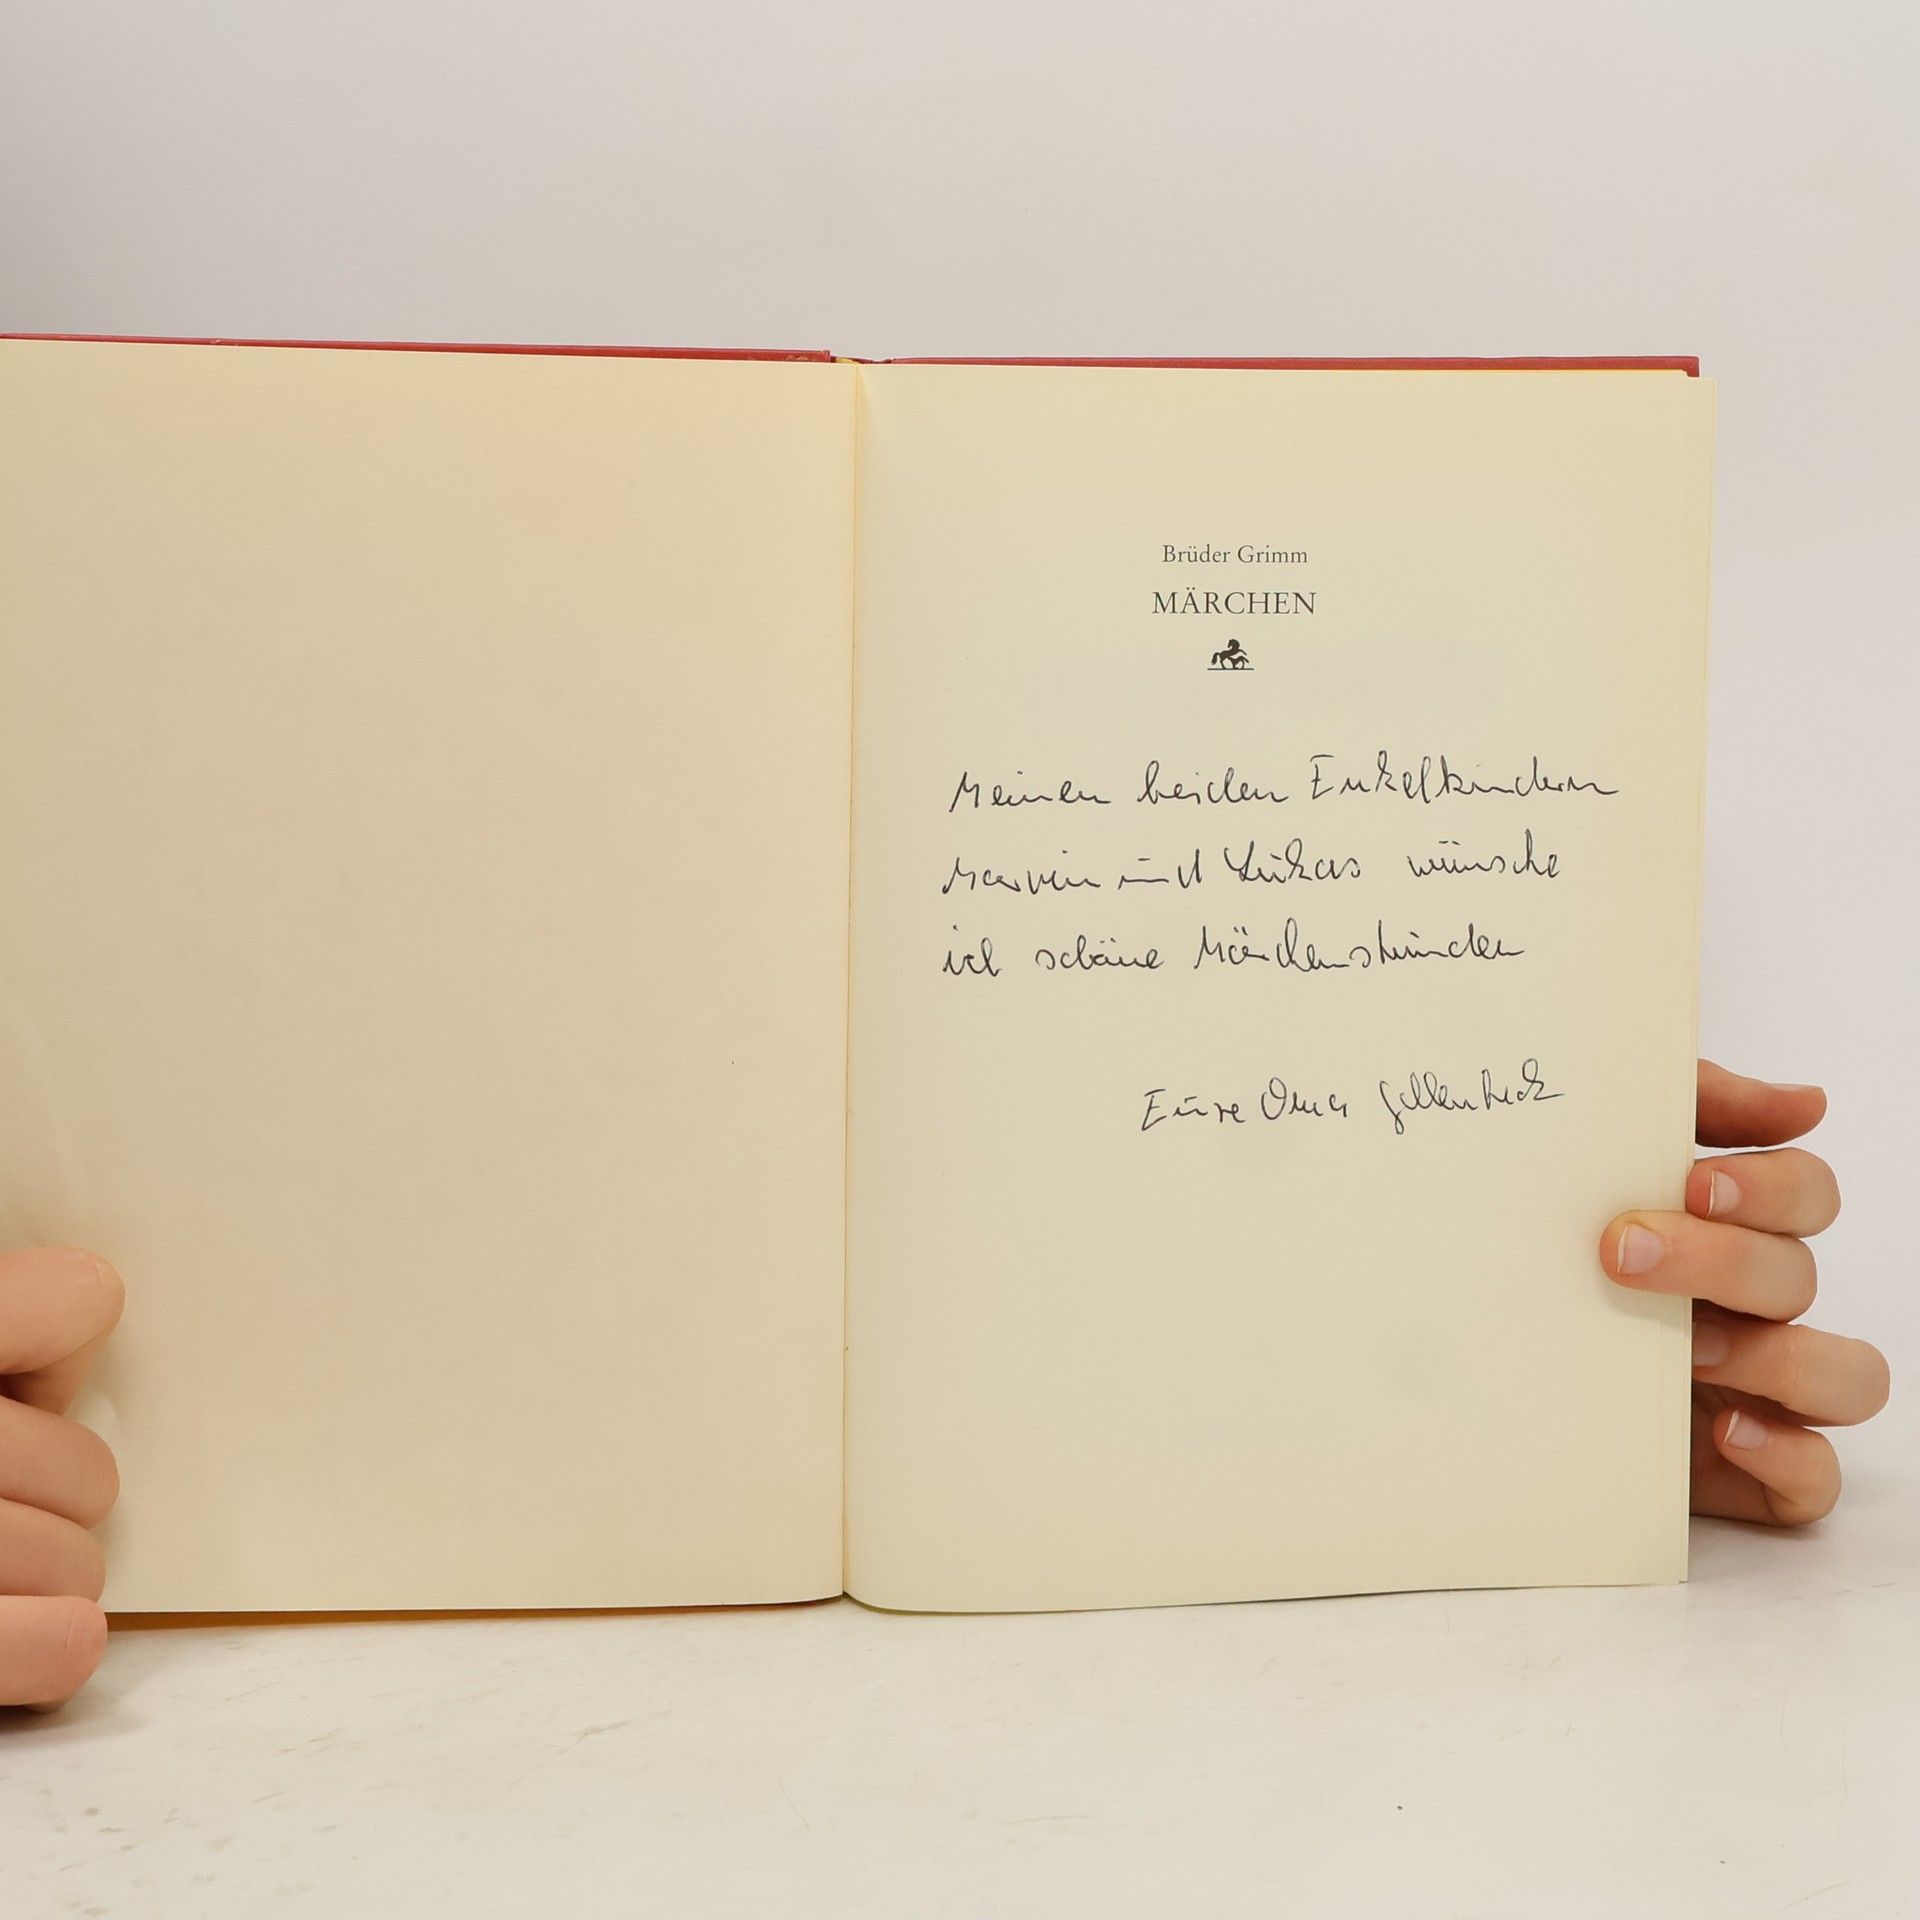 Brüder Grimm
MÄRCHEN
Meinen beiden Enkelkindern
Marvin und Lukas wünsche
ich schöne Märchenstunden
Eure Oma